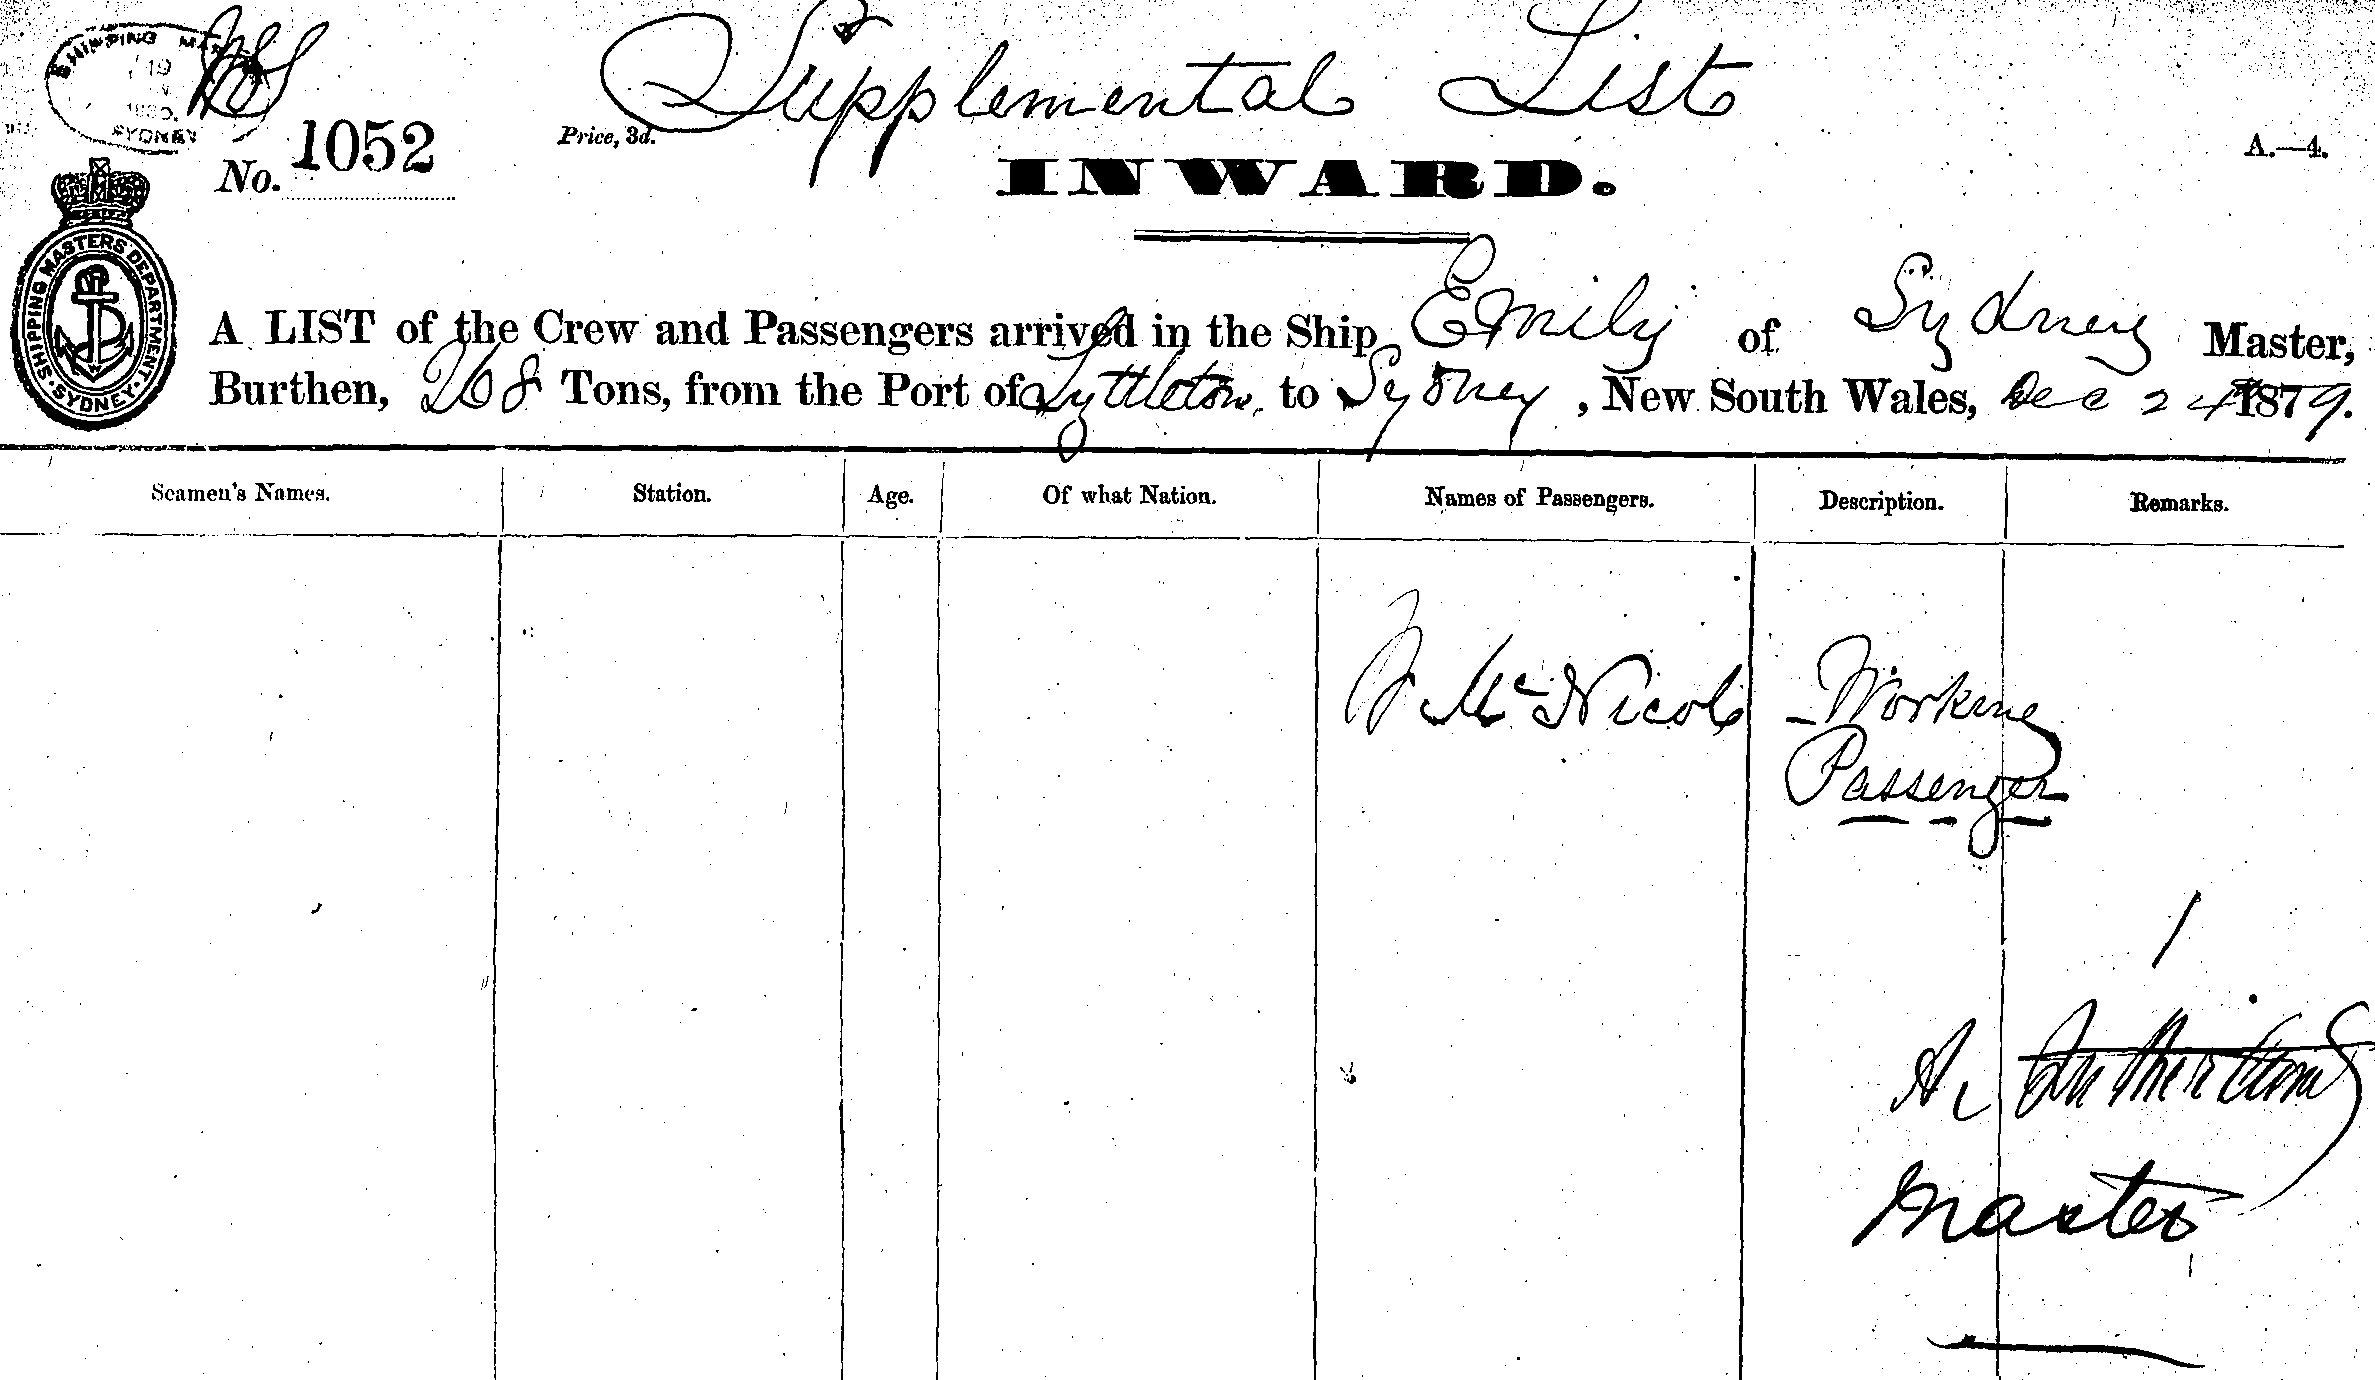 Supplemental List
SHIPPING MA
19
SYDNEY
No. 1052
Price, 3d.
A.—4.
INWARD.
SHIPPING MASTERS DEPARTMENT. SYDNEY.
A LIST of the Crew and Passengers arrived in the Ship Emily of Sydney Master,
Burthen, 268 Tons, from the Port of Lyttleton to Sydney, New South Wales, Dec 24 1879.
Seamen's Names. Station. Age. Of what Nation. Names of Passengers. Description. Remarks.
Mc Nicol Working
Passenger
1
A.
Master